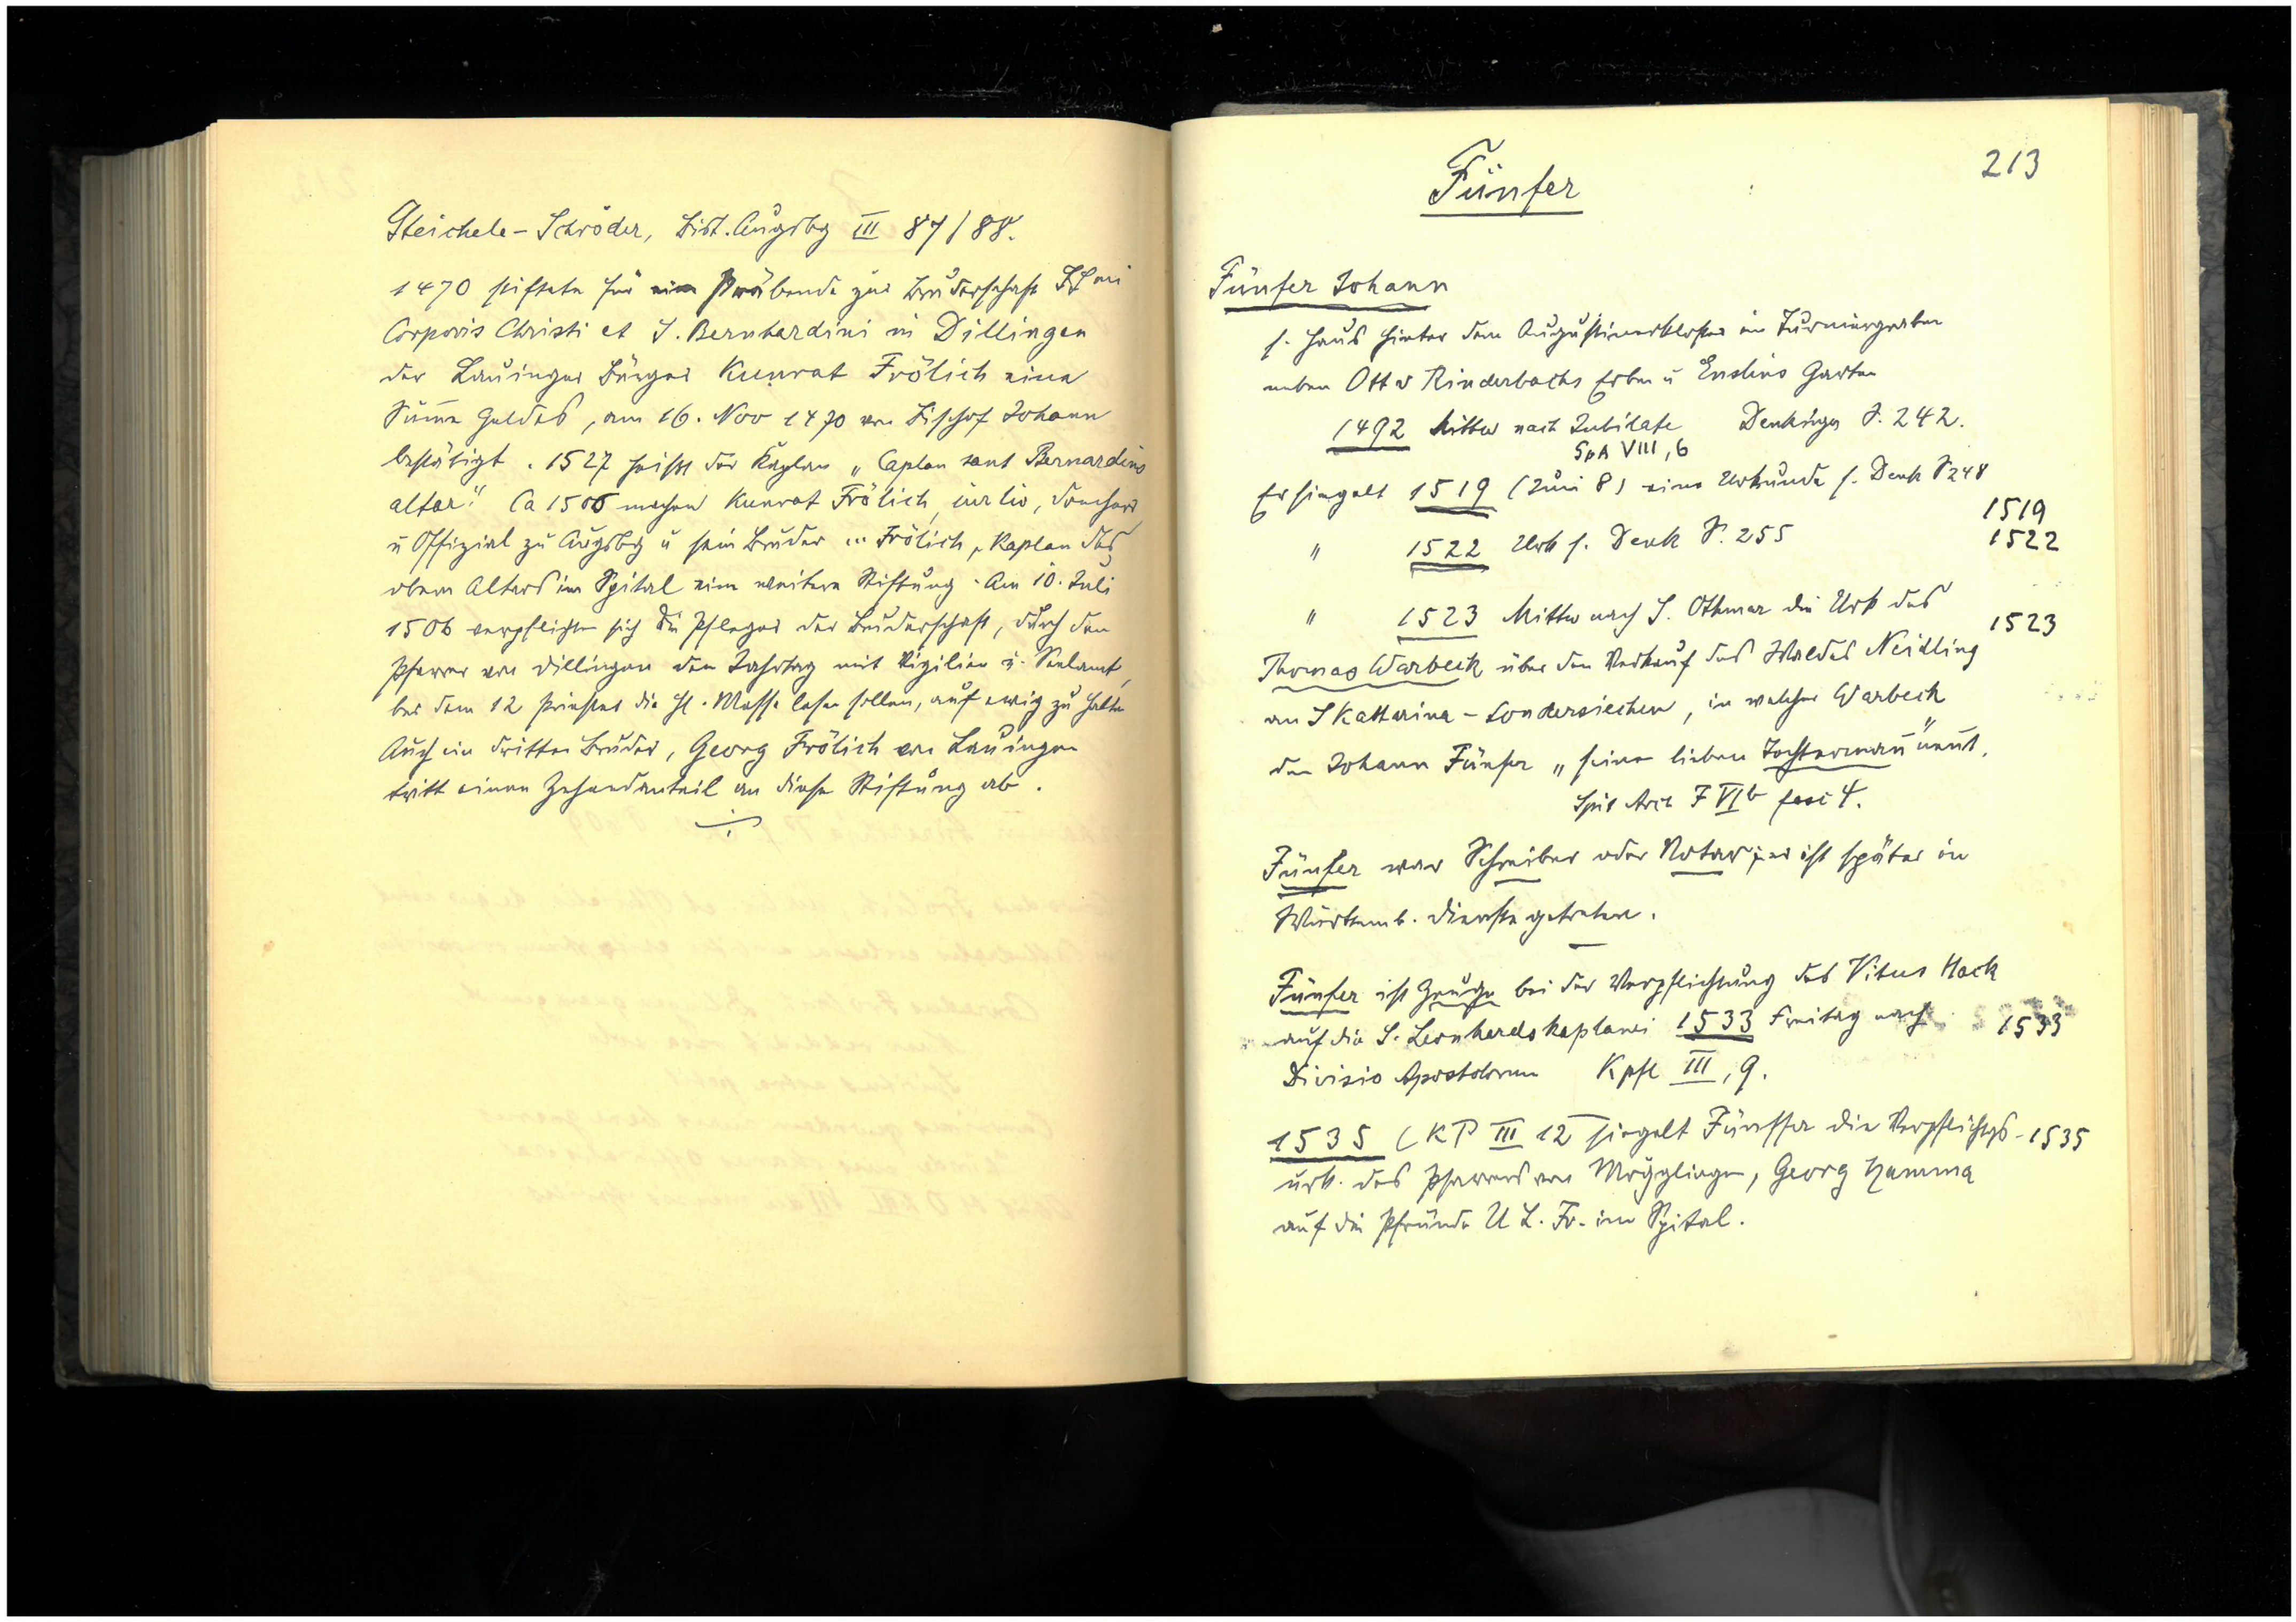 Steichele-Schröder, Bist. Augsbg III 87/88.
1470 stiftete für eine Präbende zur Bruderschaft SSmi
Corporis Christi et S. Bernhardini in Dillingen
der Lauinger Bürger Kunrat Frölich eine
Sum̄e Geldes, am 16. Nov 1470 von Bischof Johann
bestätigt. 1527 heißt der Kaplan „Caplan sant Bernardins
altar." Ca 1506 machen Kunrat Frölich, iur lic, Domherr
u Offizial zu Augsbg u sein Bruder ... Frölich, Kaplan des
obern Altars im Spital eine weitere Stiftung. Am 10. Juli
1506 verpflichten sich die Pfleger der Bruderschaft, durch den
Pfarrer von Dillingen den Jahrtag mit Vigilien u. Seelamt,
bei dem 12 Priester die hl. Messe lesen sollen, auf ewig zu halten
Auch ein dritter Bruder, Georg Frölich von Lauingen
tritt einen Zehendanteil an diese Stiftung ab.
213
Fünfer
Fünfer Johann
s. Haus hinter dem Augustinerkloster im Turniergraben
neben Ott v Rinderbachs Erben u Enslins Garten
1492 Mittw nach Jubilate Denkinger S. 242.
SpA VIII, 6
Er siegelt 1519 (Juni 8) eine Urkunde s. Denk S 248
1519
" 1522 Urk s. Denk S. 255
1522
" 1523 Mittw nach S. Othmar die Urk des
1523
Thomas Warbeck über den Verkauf des Waldes Neidling
an S Katharina-Sondersiechen, in welcher Warbeck
den Johann Fünfer „seinen lieben Tochterman̄" nen̄t.
Spit Arch F VIb fasc 4.
Fünfer war Schreiber oder Notar; er ist später in
Württemb. Dienste getreten.
Fünfer ist Zeuge bei der Verpflichtung des Vitus Hack
auf die S. Leonhardskaplanei 1533 Freitag nach
1533
Divisio Apostolorum Kpfl III, 9.
1535 (KP III 12 siegelt Fünffer die Verpflichtgs-
1535
urk. des Pfarrers von Mögglingen, Georg Hamma
auf die Pfründe U L. Fr. im Spital.